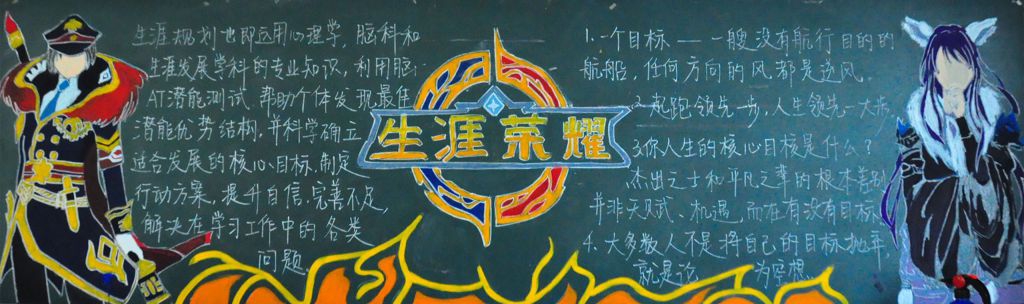 生涯规划也即运用心理学, 脑科和
生涯发展学科的专业知识, 利用脑
AT潜能测试 帮助个体发现最佳
潜能优势结构, 并科学确立
适合发展的核心目标, 制定
行动方案, 提升自信, 完善不足,
解决在学习工作中的各类
问题
生涯荣耀
1. 一个目标 —— 一艘没有航行目的的
航船, 任何方向的风都是逆风.
2. 起跑领先一步, 人生领先一大步
3. 你人生的核心目核是什么?
杰出之士和平凡之辈的根本差别
并非天贝式、机遇, 而在有没有目标
4. 大多数人不是将自己的目标抛弃,
就是沦 为空想